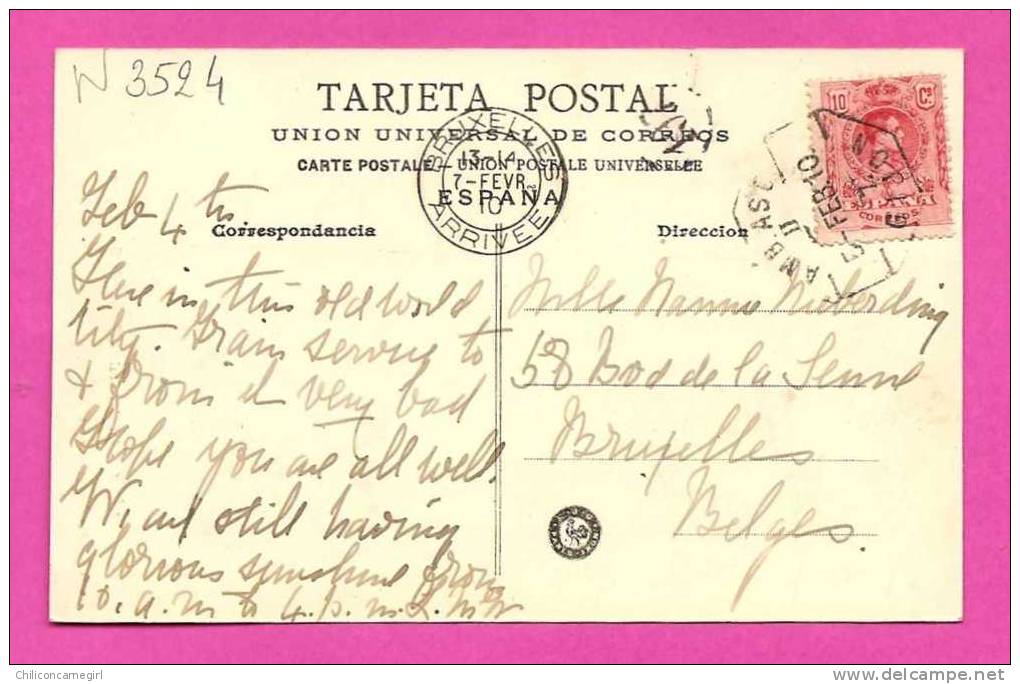 N 3524
TARJETA POSTAL
UNION UNIVERSAL DE CORREOS
CARTE POSTALE – UNION POSTALE UNIVERSELLE
ESPAÑA
BRUXELLES
13-14
7-FEVR.
10
ARRIVEE
10 Cs
CORREOS
AMB ASC
5-FEB 10
Correspondancia
Direccion
Feb 4th
Here in this old world
City. Train service to
& from it very bad
Hope you are all well.
We are still having
glorious sunshine from
10. a.m to 4. p.m.
Mlle
58 Bod de la Senne
Bruxelles
Belges
Chiliconcarnegirl
delcampe.net